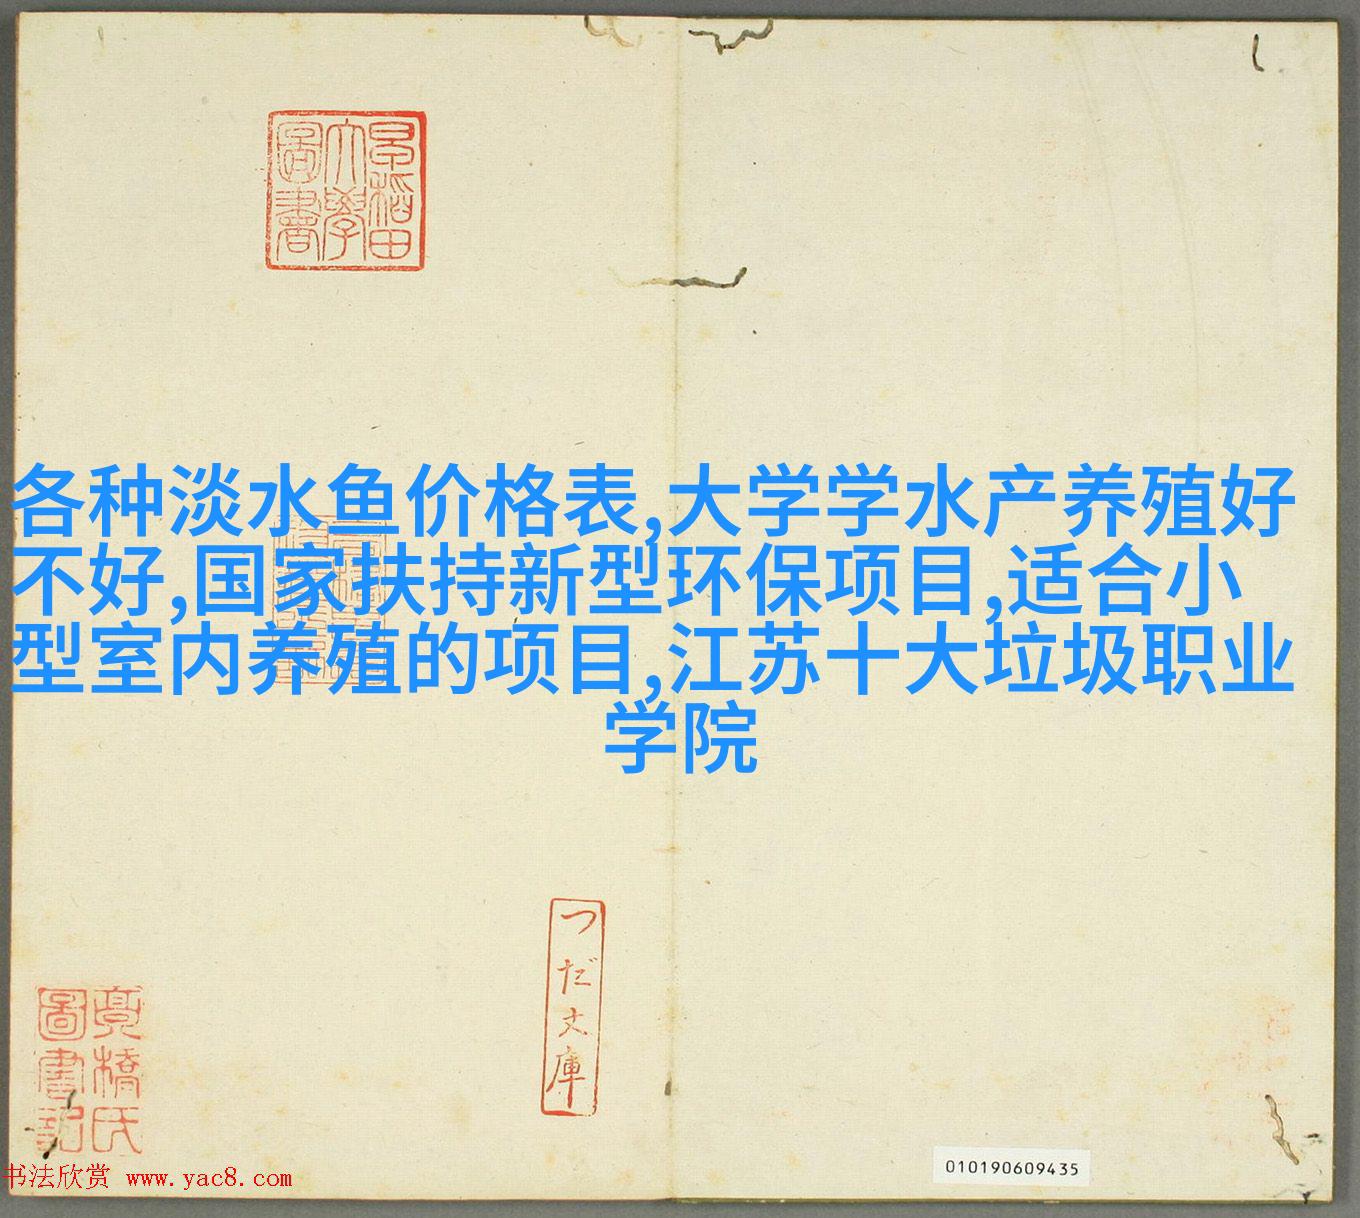 早稻田
大學
圖書
各种淡水鱼价格表,大学学水产养殖好
不好,国家扶持新型环保项目,适合小
型室内养殖的项目,江苏十大垃圾职业
学院
つだ文庫
橋氏
圖書記
书法欣赏 www.yac8.com
010190609435